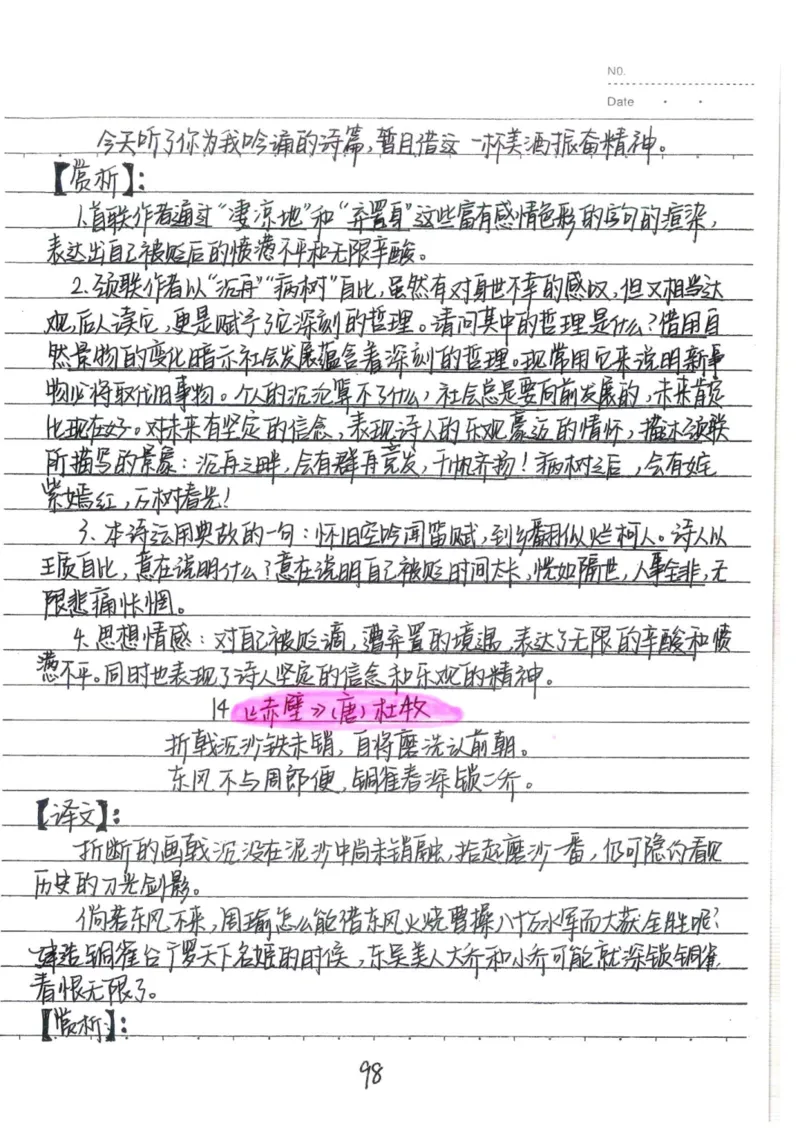 NO.
Date
今天听了你为我吟诵的诗篇,暂且借这一杯美酒振奋精神。
【赏析】:
1.首联作者通过“凄凉地”和“弃置身”这些富有感情色彩的字句的渲染,
表达出自己被贬后的愤懑不平和无限辛酸。
2.颈联作者以“沉舟”“病树”自比,虽然有对身世不幸的感叹,但又相当达
观,后人读它,更是赋予了它深刻的哲理。请问其中的哲理是什么?借用自
然景物的变化暗示社会发展蕴含着深刻的哲理。现常用它来说明新事
物必将取代旧事物。个人的沉沦算不了什么,社会总是要向前发展的,未来肯定
比现在好。对未来有坚定的信念,表现诗人的乐观豪迈的情怀,描述颈联
所描写的景象:沉舟之畔,会有群舟竞发,千帆齐扬!病树之后,会有姹
紫嫣红,万树春光!
3.本诗运用典故的一句:怀旧空吟闻笛赋,到乡翻似烂柯人。诗人以
王质自比,意在说明什么?意在说明自己被贬时间太长,恍如隔世,人事全非,无
限悲痛怅惘。
4.思想情感:对自己被贬谪,遭弃置的境遇,表达了无限的辛酸和愤
懑不平。同时也表现了诗人坚定的信念和乐观的精神。
14《赤壁》(唐)杜牧
折戟沉沙铁未销,自将磨洗认前朝。
东风不与周郎便,铜雀春深锁二乔。
【译文】:
折断的画戟沉没在泥沙中尚未销融,拾起磨沙一番,仍可隐约看见
历史的刀光剑影。
倘若东风不来,周瑜怎么能借东风火烧曹操八十万水军而大获全胜呢?
建造铜雀台广罗天下名姬的时候,东吴美人大乔和小乔可能就深锁铜雀,
春恨无限了。
【赏析】:
98